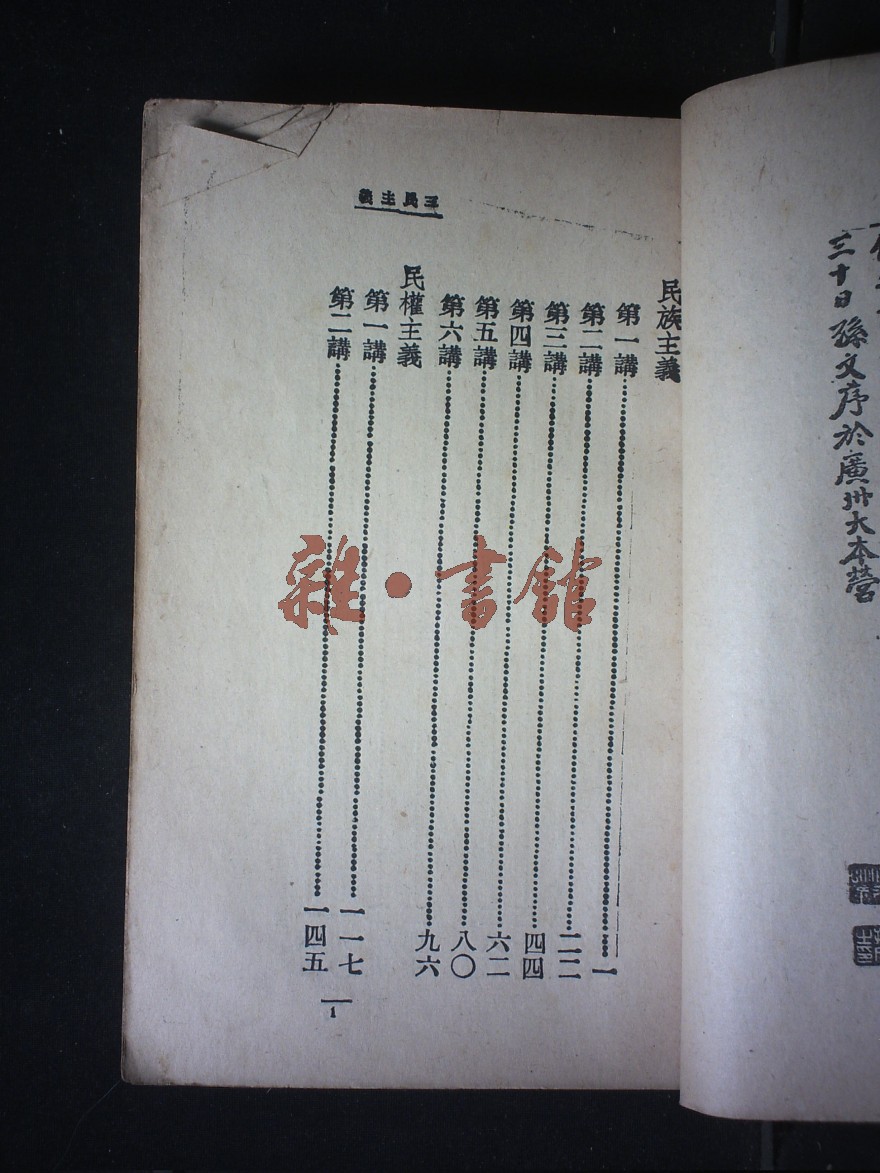 三十日孫文序於廣州大本營
三民主義
民族主義
第一講……一
第二講……二二
第三講……四四
第四講……六二
第五講……八〇
第六講……九六
民權主義
第一講……一一七
第二講……一四五
1
雜·書館